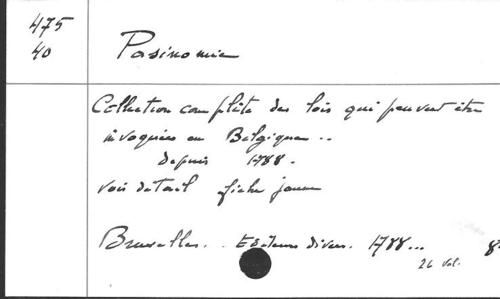 475
40
Pasinomie
Collection complète des lois qui peuvent être
invoquées en Belgique ..
depuis 1788.
voir détail fiche jaune
Bruxelles. . Editeurs divers. 1788... 8°
26 vol.